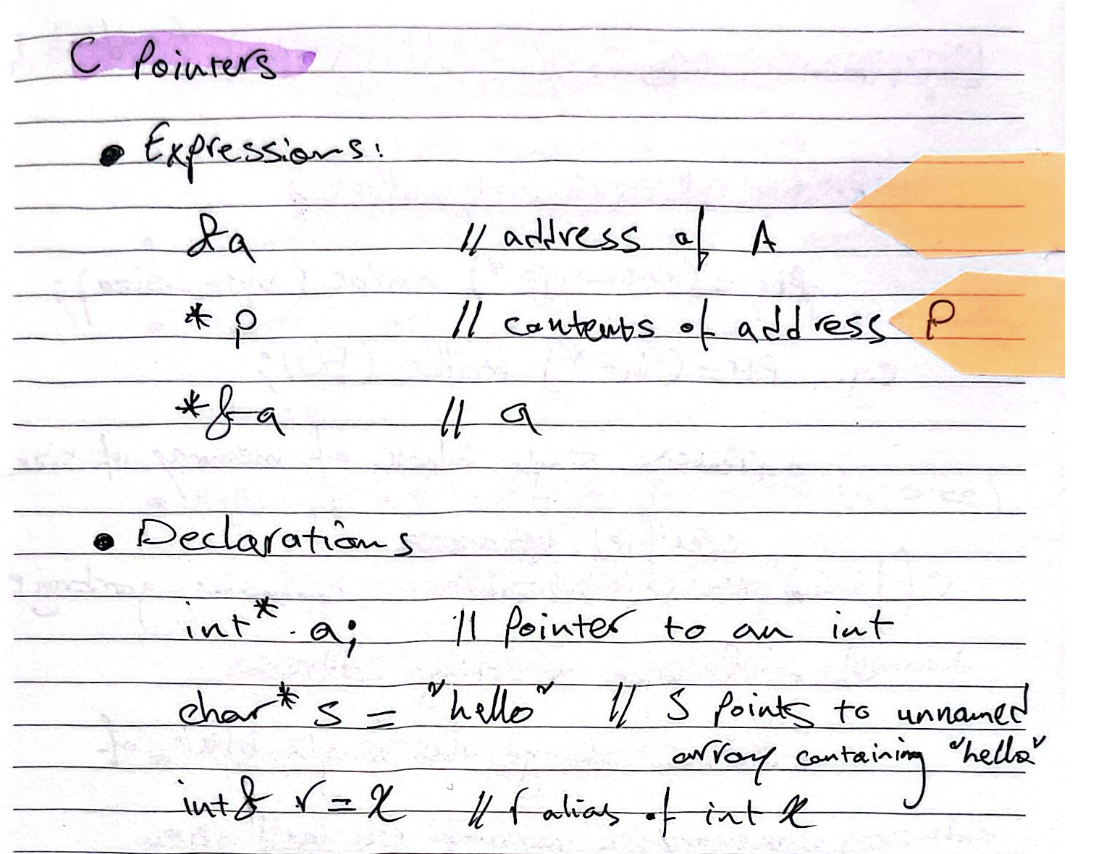 C Pointers
• Expressions:
&a // address of A
* p // contents of address P
*&a // a
• Declarations
int* a; // Pointer to an int
char* s = "hello" // S Points to unnamed
array containing "hello"
int& r = x // r alias of int x